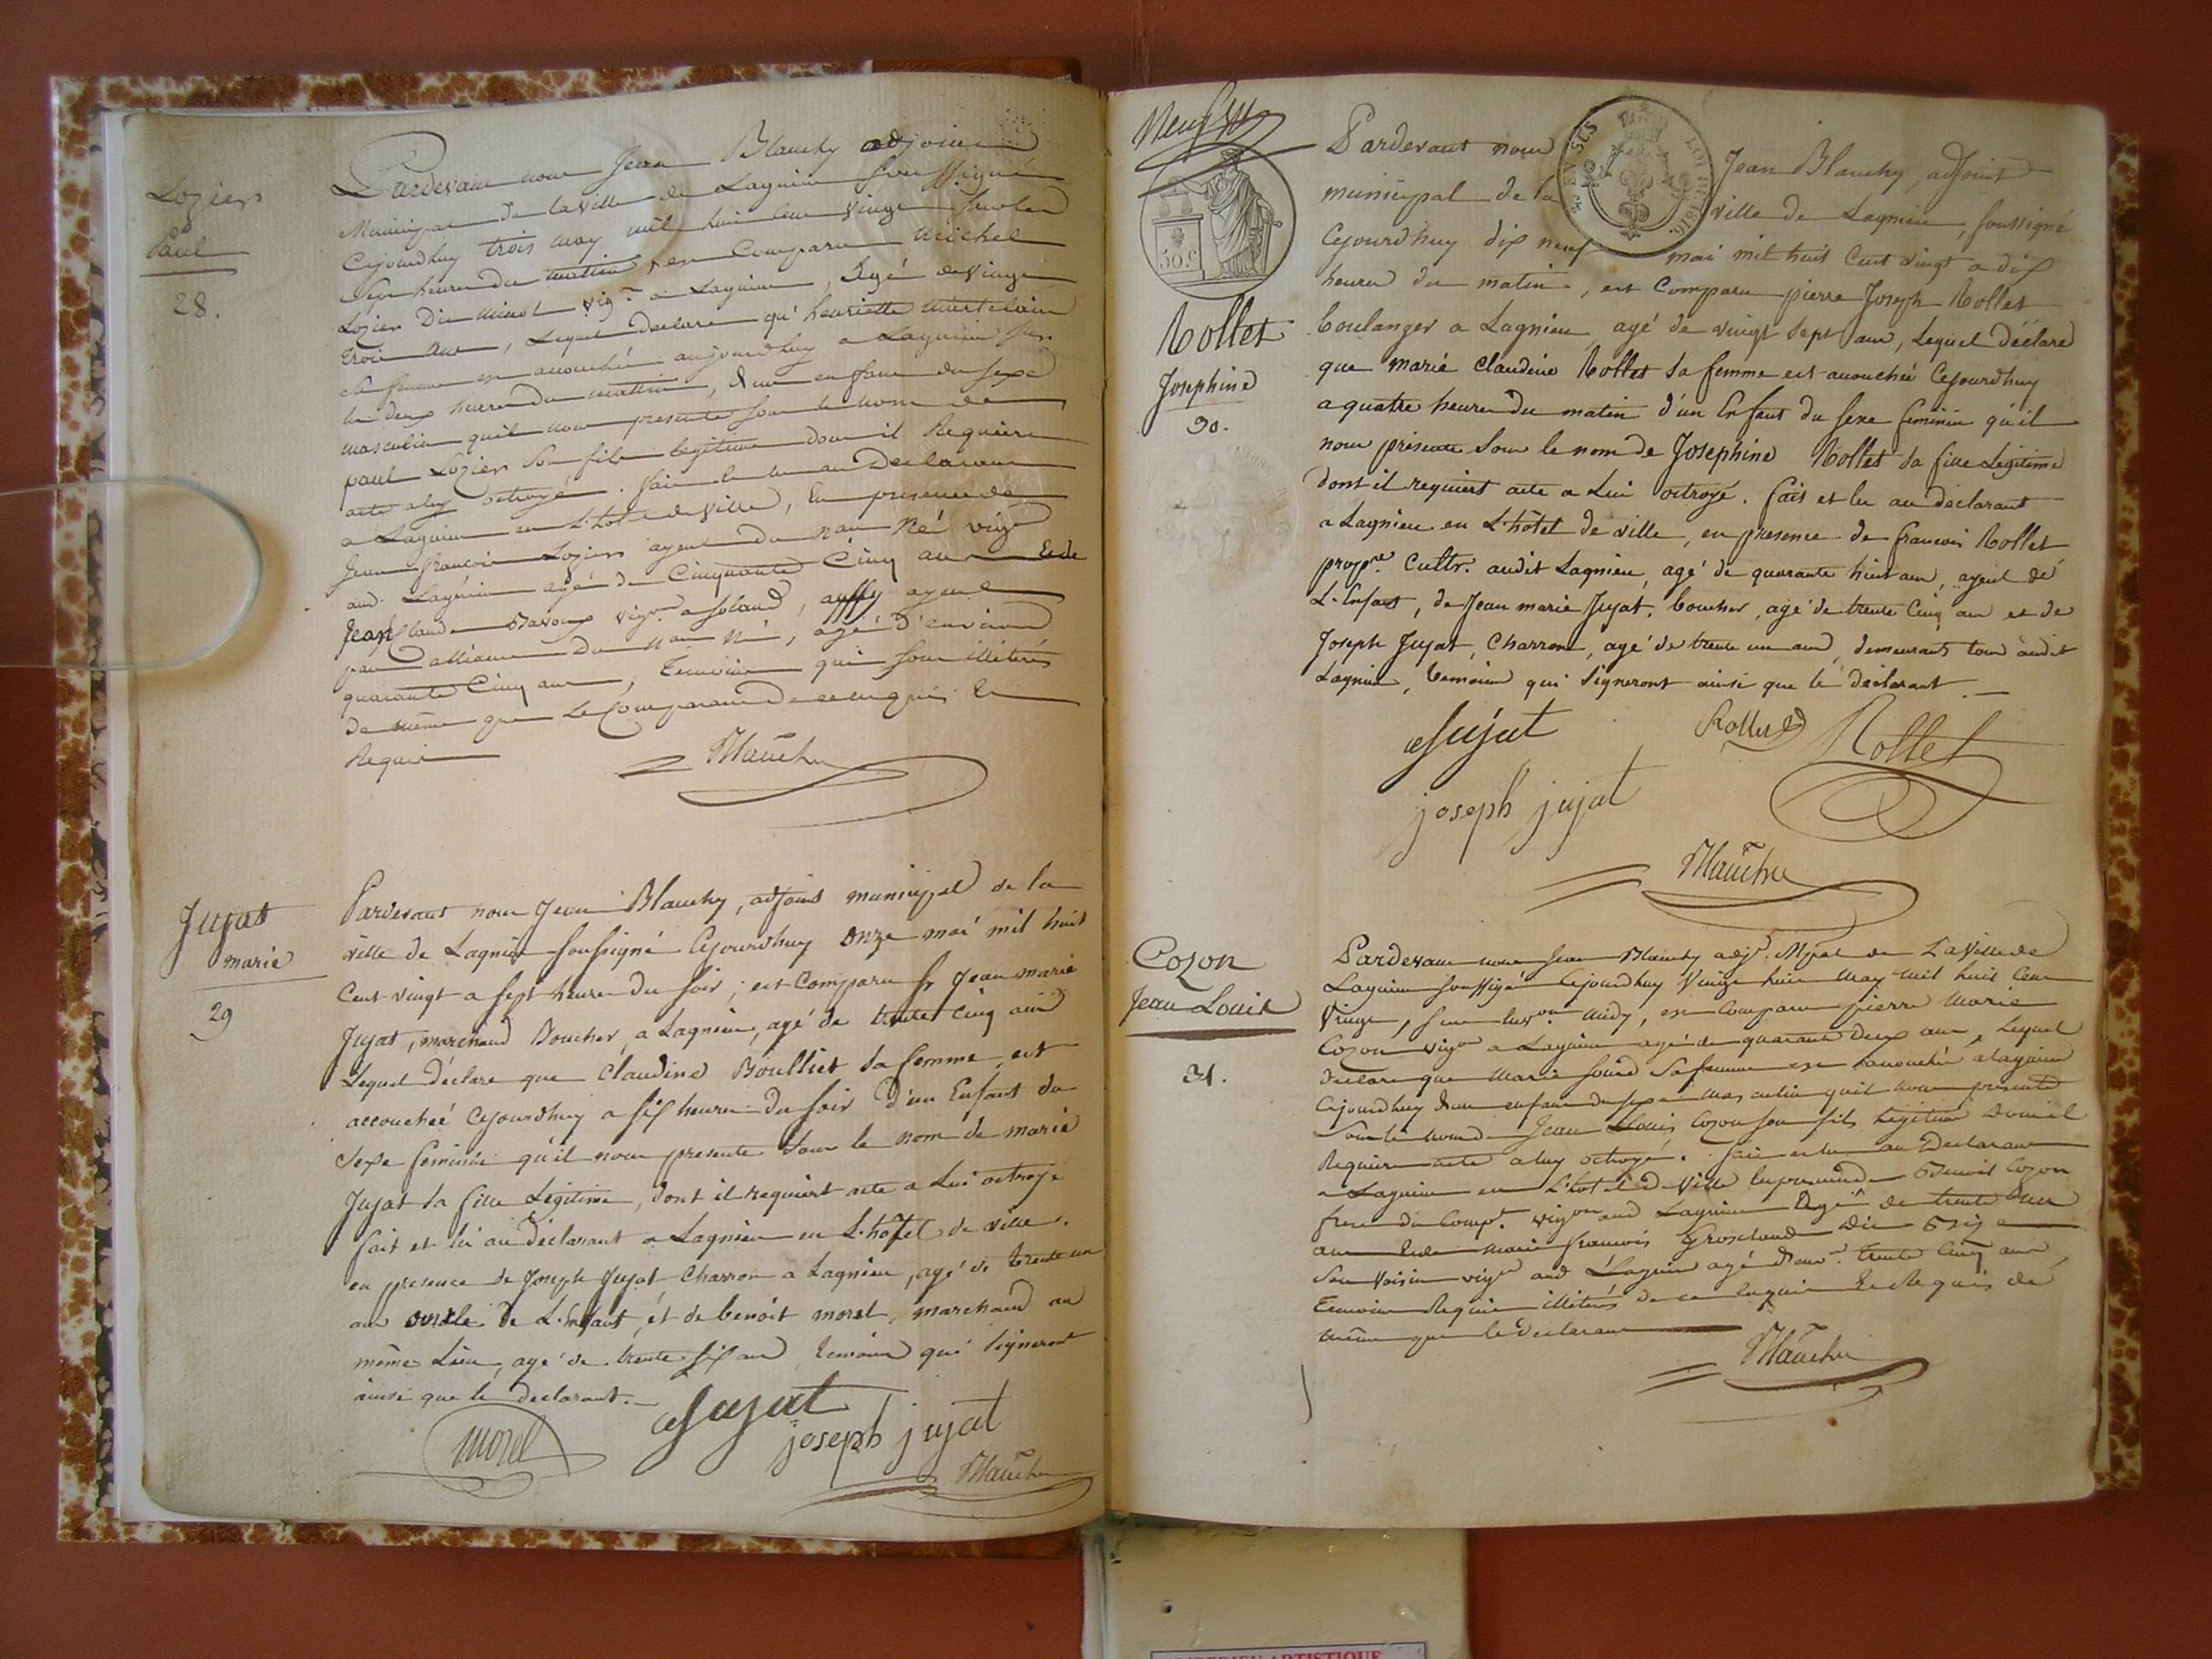 Lozier
Paul
28.
Pardevant nous Jean Blanchy adjoint
Municipal de la ville de Lagnieu soussigné
Cejourdhuy trois may mil huit cent vingt sur les
Sept heures du mattin, est Comparu Michel
Lozier Dit vig.on a Lagnieu, agé de vingt
trois ans, Lequel Declare qu'henriette
sa femme est accouché aujourdhuy a Lagnieu sur
les deux heures du mattin, d'un enfant du sexe
masculin quil nous presente sous le nom de
paul Lozier Son fils legitime dont il Requiere
acte a luy octroyé. fait et lu au Declarant
a Lagnieu en L'hotel de ville, En presence de
Jean francois Lozier ayeul du nau né vig.on
aud. Lagnieu agé de Cinquante Cinq ans Et de
Jean Claude vig.on a , aussy ayeul
par alliance du nau né, agé d'environ
quarante Cinq ans, Temoins qui sont illiterés
de même que Le Comparant de ce enquis Et
Requis
Blanchy
Jujat
marie
29
Pardevant nous Jean Blanchy, adjoint municipal de la
ville de Lagnieu soussigné Cejourdhuy onze mai mil huit
Cent vingt a sept heures du soir, est Comparu sr Jean marie
Jujat, marchand Boucher, a Lagnieu, agé de trente Cinq ans
Lequel déclare que Claudine Boulliet sa femme, est
accouchée Cejourdhuy a six heures du soir d'un Enfant du
Sexe feminin qu'il nous presente sous le nom de marie
Jujat sa fille Légitime, dont il requiert acte a Lui octroyé
fait et lu au déclarant a Lagnieu en L'hôtel de ville.
en presence de Joseph Jujat Charron a Lagnieu, agé de trente un
ans oncle de L'Enfant, et de benoit morel, marchand au
même Lieu, agé de trente six ans temoins qui signeront
ainsi que le declarant.
morel
Jujat
joseph jujat
Blanchy
Neuf
50 c
EN SUS
LOI DE 1816.
Rollet
Josephine
30.
Pardevant nous Jean Blanchy, adjoint
municipal de la ville de Lagnieu, soussigné
Cejourdhuy dix neuf mai mil huit Cent vingt a dix
heures du matin, est Comparu pierre Joseph Rollet
boulanger a Lagnieu, agé de vingt sept ans, Lequel déclare
que marie Claudine Rollet sa femme est accouchée Cejourdhuy
a quatre heures du matin d'un Enfant du sexe feminin qu'il
nous présente sous le nom de Josephine Rollet sa fille Légitime
dont il requiert acte a Lui octroyé. fait et lu au déclarant
a Lagnieu en L'hôtel de ville, en presence de francois Rollet
propre. Cultr. audit Lagnieu, agé de quarante huit ans, ayeul de
L'Enfant, de Jean marie Jujat, boucher, agé de trente Cinq ans et de
Joseph Jujat, Charron, agé de trente un ans, demeurants tous audit
Lagnieu, temoins qui signeront ainsi que le déclarant.
Jujat
Rollet
Rollet
joseph jujat
Blanchy
Cozon
Jean Louis
31.
Pardevant nous Jean Blanchy adjt. Mpal de La Ville de
Lagnieu soussigné Cejourdhuy Vingt huit May mil huit Cent
Vingt, sur midy, est Comparu pierre Marie
Cozon vig.on a Lagnieu agé de quarante Deux ans, Lequel
declare que Marie sa femme est accouchée a lagnieu
Cejourdhuy d'un enfant du sexe masculin quil nous presente
sous le nom de Jean Louis Cozon son fils legitime dont il
Requiere acte a luy octroyé. fait et lu au Declarant
a Lagnieu en L'hotel de Ville En presence de Benoit Cozon
frere du Compt. vig.on aud Lagnieu Agé de trente
ans Et de Marie francois Grosclaude dit
son Voisin vig.on aud Lagnieu agé d'env. trente Cinq ans
Temoins Requis illiterés de ce Enquis Et Requis de
même que le declarant
Blanchy